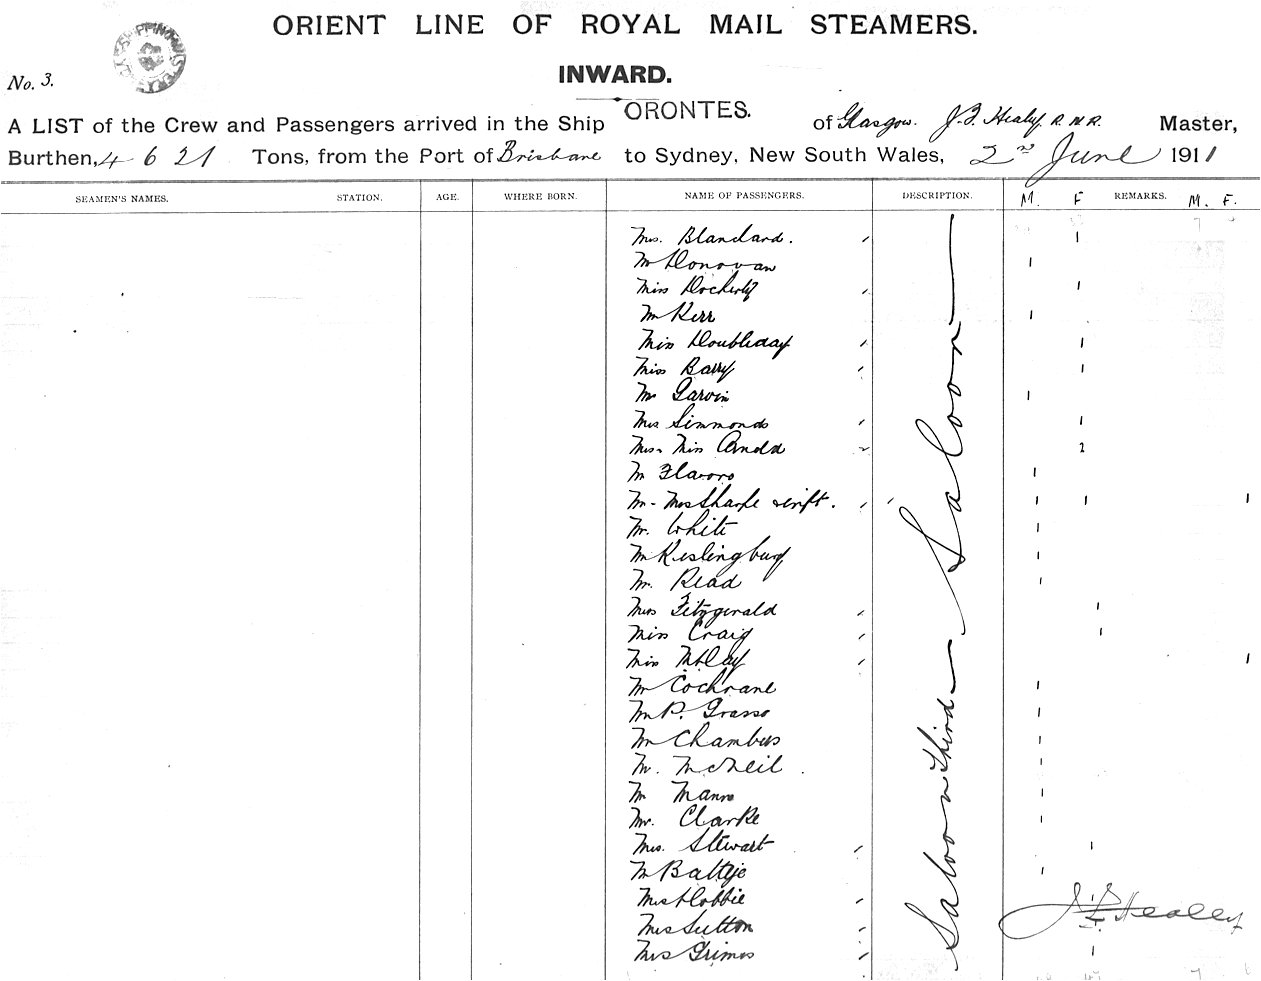 ORIENT LINE OF ROYAL MAIL STEAMERS.
No. 3.
INWARD.
A LIST of the Crew and Passengers arrived in the Ship ORONTES. of Glasgow. J. F. Healy, R.N.R. Master,
Burthen, 4621 Tons, from the Port of Brisbane to Sydney, New South Wales, 2nd June 1911
SEAMEN'S NAMES. STATION. AGE. WHERE BORN. NAME OF PASSENGERS. DESCRIPTION. M. F REMARKS. M. F.
Mrs. Blanchard. 1
Mr Donovan 1
Miss Docherty 1
Mr Kerr 1
Miss Doubleday 1
Miss Barry 1
Mr Garvin 1
Mrs Simmonds 1
Mrs. Miss Arnold 2 2
Mr 1
Mr - Mrs Sharpe & inft. 1 1 1
Mr. White 1
Mr Kislingbury 1
Mr. Read 1
Miss Fitzgerald 1
Miss Craig 1
Miss 1
Mr Cochrane 1
Mr P. Grasso 1
Mr Chambers 1
Mr. McNeil 1
Mr Mann 1
Mr. Clarke 1
Mrs. Stewart 1
Mr 1
Mrs Hobbie
Mrs Sutton
Mrs Grimes 1
Saloon
Saloon Third
J F Healey